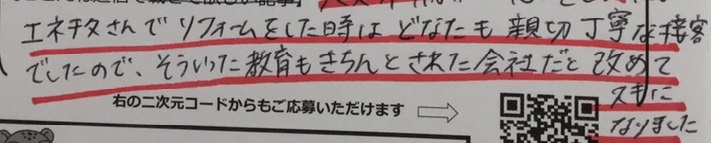 エネチタさんでリフォームをした時は どなたも 親切丁寧な接客
でしたので、そういった教育もきちんとされた会社だと 改めて
スキに
なりました
右の二次元コードからもご応募いただけます